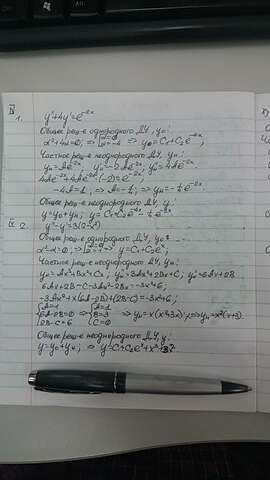 IV 1. y''+4y'=e^{-2x}
Общее реш-е однородного ДУ, y₀:
α²+4α=0, ⇒ [α=0 α=-4 ⇒ y₀=C₁+C₂e^{-4x},
Частное реш-е неоднородного ДУ, yч:
yч=Ae^{-2x}, yч'=-2Ae^{-2x}, yч''=4Ae^{-2x}
4Ae^{-2x}+4Ae^{-2x}(-2)=e^{-2x}
-4A=1, ⇒ A=-¼; ⇒ yч=-¼e^{-2x}
Общее реш-е неоднородного ДУ, y:
y=y₀+yч; y=C₁+C₂e^{-4x}-¼e^{-2x}
2. y''-y'=3(2-x²)
Общее реш-е однородного ДУ, y₀:
α²-α=0; ⇒ y₀=C₁+C₂e^{x}
Частное реш-е неоднородного ДУ, yч:
yч=Ax³+Bx²+Cx; yч'=3Ax²+2Bx+C; yч''=6Ax+2B
6Ax+2B-C-3Ax²-2Bx=-3x²+6;
-3Ax²+x(6A-2B)+(2B-C)=-3x²+6;
A=1 A=1
6A-2B=0 ⇒ B=3 ⇒ yч=x(x²+3x); ⇒ yч=x²(x+3)
2B-C=6 C=0
Общее реш-е неоднородного ДУ, y:
y=y₀+yч, ⇒ y=C₁+C₂e^{x}+x³+3x²